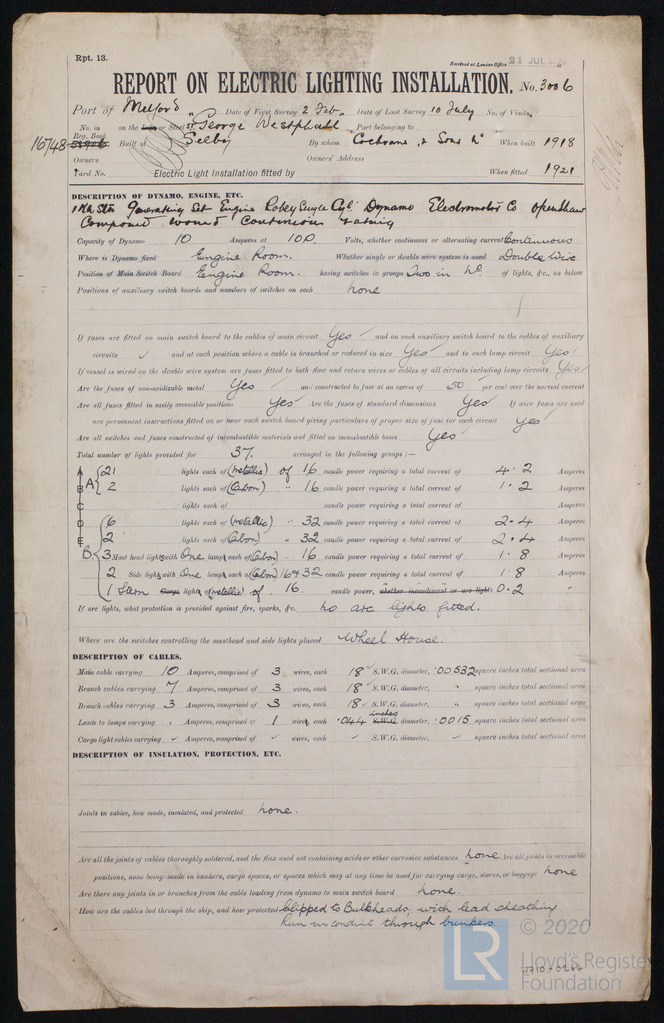 Rpt. 13.
Received at London Office 21 JUL
REPORT ON ELECTRIC LIGHTING INSTALLATION. No. 3006
Port of Milford Date of First Survey 2 Feb Date of Last Survey 10 July No. of Visits
No. in Reg. Book on the Iron or Steel S.S. "George Westphall" Port belonging to
16748 Built at Selby By whom Cochrane & Sons Ld When built 1918
Owners Owners' Address
Yard No. Electric Light Installation fitted by When fitted 1921
DESCRIPTION OF DYNAMO, ENGINE, ETC.
Generating Set Engine Robey Single Cyl. Dynamo Electromotor Co Openshaw
Compound wound Continuous rating
Capacity of Dynamo 10 Amperes at 100. Volts, whether continuous or alternating current Continuous
Where is Dynamo fixed Engine Room. Whether single or double wire system is used Double Wire
Position of Main Switch Board Engine Room. having switches to groups Two in No. of lights, &c., as below
Positions of auxiliary switch boards and numbers of switches on each none
If fuses are fitted on main switch board to the cables of main circuit Yes and on each auxiliary switch board to the cables of auxiliary
circuits ✓ and at each position where a cable is branched or reduced in size Yes and to each lamp circuit Yes
If vessel is wired on the double wire system are fuses fitted to both flow and return wires or cables of all circuits including lamp circuits Yes
Are the fuses of non-oxidizable metal Yes and constructed to fuse at an excess of 50 per cent over the normal current
Are all fuses fitted in easily accessible positions Yes Are the fuses of standard dimensions Yes If wire fuses are used
are permanent instructions fitted on or near each switch board giving particulars of proper size of fuse for each circuit Yes
Are all switches and fuses constructed of incombustible materials and fitted on incombustible bases Yes
Total number of lights provided for 37. arranged in the following groups :—
A 21 lights each of (metallic) of 16 candle power requiring a total current of 4.2 Amperes
2 lights each of (Carbon) " 16 candle power requiring a total current of 1.2 Amperes
C lights each of candle power requiring a total current of Amperes
D 6 lights each of (metallic) " 32 candle power requiring a total current of 2.4 Amperes
E 2 lights each of (Carbon) " 32 candle power requiring a total current of 2.4 Amperes
B. 3 Mast head light with One lamp each of (Carbon) 16 candle power requiring a total current of 1.8 Amperes
2 Side light with One lamp each of (Carbon) 16 & 32 candle power requiring a total current of 1.8 Amperes
1 Stern Cargo light of (metallic) of 16. candle power, whether incandescent or arc lights 0.2 "
If arc lights, what protection is provided against fire, sparks, &c. no arc lights fitted.
Where are the switches controlling the masthead and side lights placed Wheel House.
DESCRIPTION OF CABLES.
Main cable carrying 10 Amperes, comprised of 3 wires, each 18 S.W.G. diameter, .00532 square inches total sectional area
Branch cables carrying 7 Amperes, comprised of 3 wires, each 18 S.W.G. diameter, " square inches total sectional area
Branch cables carrying 3 Amperes, comprised of 3 wires, each 18 S.W.G. diameter, " square inches total sectional area
Leads to lamps carrying . Amperes, comprised of 1 wires, each .044 inches diameter, .0015 square inches total sectional area
Cargo light cables carrying ✓ Amperes, comprised of ✓ wires, each ✓ S.W.G. diameter, ✓ square inches total sectional area
DESCRIPTION OF INSULATION, PROTECTION, ETC.
Joints in cables, how made, insulated, and protected none.
Are all the joints of cables thoroughly soldered, and the flux used not containing acids or other corrosive substances none Are all joints in accessible
positions, none being made in bunkers, cargo spaces, or spaces which may at any time be used for carrying cargo, stores, or baggage none
Are there any joints in or branches from the cable leading from dynamo to main switch board none.
How are the cables led through the ship, and how protected Clipped to Bulkheads, with lead sheathing
Run in conduit through bunkers.
LR © 2020
Lloyd's Register
Foundation